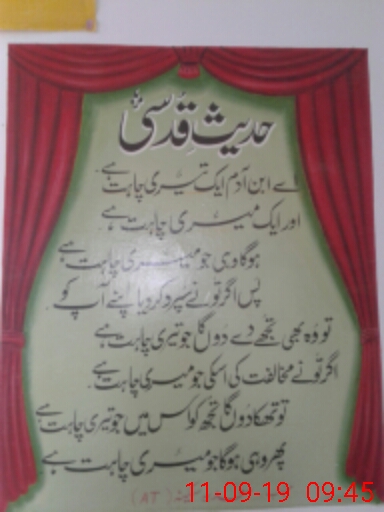 حدیثِ قُدسی
اے ابن آدم ایک تیری چاہت ہے
اور ایک میری چاہت ہے
ہوگا وہی جو میری چاہت ہے
پس اگر تُو نے سپرد کر دیا اپنے آپ کو
تو وہ بھی تجھے دے دوں گا جو تیری چاہت ہے
اگر تُو نے مخالفت کی اسکی جو میری چاہت ہے
تو تھکا دوں گا تجھ کو اس میں جو تیری چاہت ہے
پھر وہی ہوگا جو میری چاہت ہے
(AT)
11-09-19 09:45